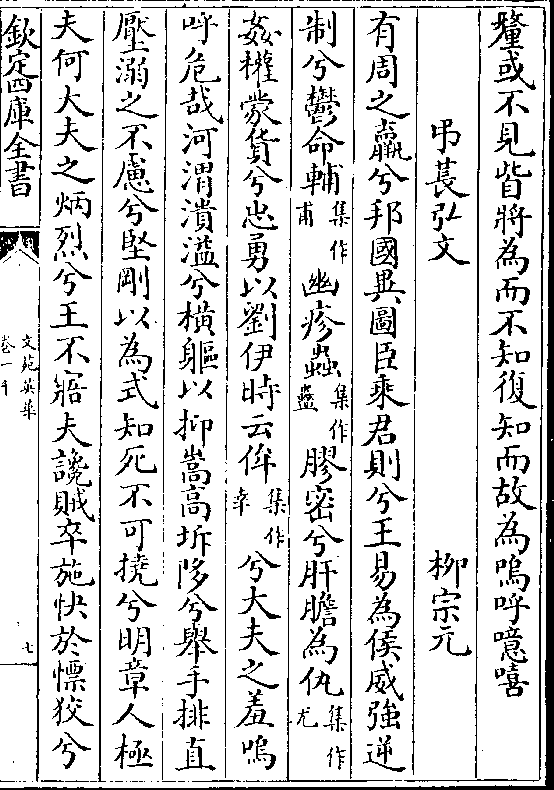 釐或不見皆將為而不知復知而故為嗚呼噫嘻
弔萇弘文　柳宗元
有周之羸兮邦國異圖臣乘君則兮王易為侯威強逆
制兮鬱命輔集作甫幽疹蠱集作蠱膠密兮肝膽為仇集作尤
姦權蒙貨兮忠勇以劉伊時云侔集作幸兮大夫之羞嗚
呼危哉河渭潰溢兮橫軀以抑嵩高坼陊兮舉手排直
壓溺之不慮兮堅剛以為式知死不可撓兮明章人極
夫何大夫之炳烈兮王不寤夫讒賊卒施快於慓狡兮
欽定四庫全書
文苑英華
卷一千
七